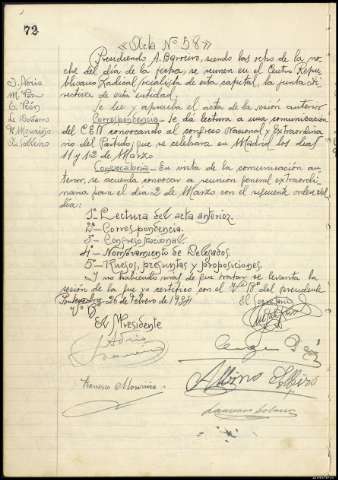 72
«Acta Nº 58»
Presidiendo A. Barreiro, siendo las ocho de la no-
che del día de la fecha se reunen en el Centro Repu-
blicano Radical socialista de esta capital, la junta di-
rectiva de esta entidad.
Se lee y aprueba el acta de la sesión anterior
Correspondencia.- Se da lectura a una comunicación
del C.E.N. convocando al congreso Nacional y Extraordina-
rio del Partido, que se celebrara en Madrid los dias
11 y 12 de Marzo.
Convocatoria.- En vista de la comunicación an-
terior, se acuerda convocar a reunion general extraordi-
naria para el dia 2 de Marzo con el siguiente orden del
día:
1º Lectura del acta anterior.
2º- Correspondencia.
3º- Congreso nacional.
4º- Nombramiento de Delegados.
5º- Ruegos, preguntas y proposiciones.
Y no habiendo mas de que tratar se levanta la
sesión de la que yo certifico con el Vº Bº del presidente
Pontevedra, 26 de Febrero de 1934
Vº Bº
El Secretario
El Presidente
Adrio
Barreiro
Francisco
Albino
Laureano